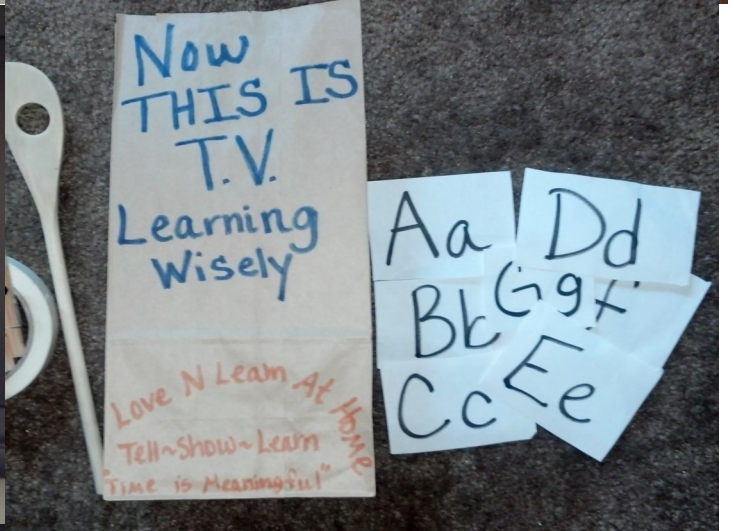 Now
THIS IS
T.V.
Learning
Wisely
Love N Learn At Home
Tell~Show~Learn
"Time is Meaningful"
Aa
Dd
Bb
Gg
f
Cc
Ee